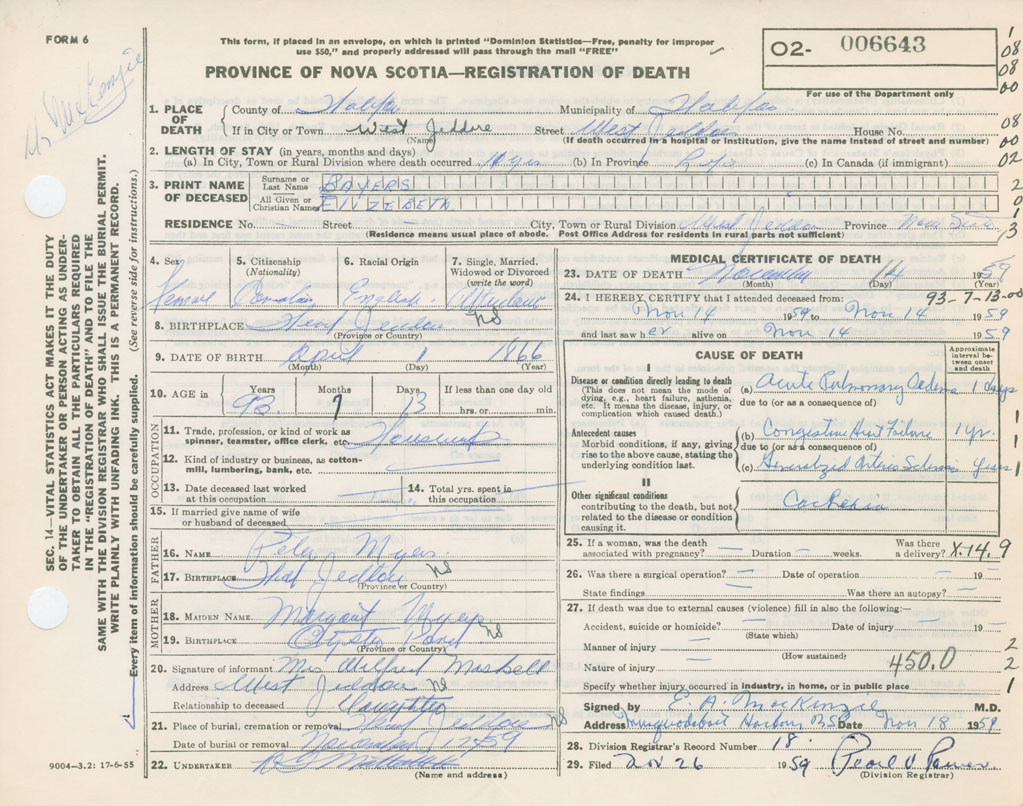 FORM 6
This form, if placed in an envelope, on which is printed "Dominion Statistics—Free, penalty for improper
use $50," and properly addressed will pass through the mail "FREE"
PROVINCE OF NOVA SCOTIA—REGISTRATION OF DEATH
02- 006643
For use of the Department only
08
08
00
08
00
02
2
0
1
3
SEC. 14—VITAL STATISTICS ACT MAKES IT THE DUTY
OF THE UNDERTAKER OR PERSON ACTING AS UNDER-
TAKER TO OBTAIN ALL THE PARTICULARS REQUIRED
IN THE "REGISTRATION OF DEATH" AND TO FILE THE
SAME WITH THE DIVISION REGISTRAR WHO SHALL ISSUE THE BURIAL PERMIT.
WRITE PLAINLY WITH UNFADING INK. THIS IS A PERMANENT RECORD.
Every item of information should be carefully supplied. (See reverse side for instructions.)
1. PLACE OF DEATH County of Halifax Municipality of Halifax
If in City or Town West Jeddore Street West Jeddore House No.
(Name) (If death occurred in a hospital or Institution, give the name instead of street and number)
2. LENGTH OF STAY (in years, months and days)
(a) In City, Town or Rural Division where death occurred (b) In Province Life (c) In Canada (if immigrant)
3. PRINT NAME OF DECEASED Surname or Last Name BAYERS
All Given or Christian Names ELIZEBETH
RESIDENCE No. Street City, Town or Rural Division West Jeddore Province Nova Scotia
(Residence means usual place of abode. Post Office Address for residents in rural parts not sufficient)
4. Sex Female
5. Citizenship (Nationality) Canadian
6. Racial Origin English
7. Single, Married, Widowed or Divorced (write the word)
8. BIRTHPLACE Head Jeddore NS
(Province or Country)
9. DATE OF BIRTH April 1 1866
(Month) (Day) (Year)
10. AGE in Years 93 Months 7 Days 13 If less than one day old hrs. or min.
OCCUPATION
11. Trade, profession, or kind of work as spinner, teamster, office clerk, etc. Housework
12. Kind of industry or business, as cotton-mill, lumbering, bank, etc.
13. Date deceased last worked at this occupation
14. Total yrs. spent in this occupation
15. If married give name of wife or husband of deceased
FATHER
16. NAME Peter Myers
17. BIRTHPLACE Head Jeddore
(Province or Country)
MOTHER
18. MAIDEN NAME Margaret Myers
19. BIRTHPLACE Oyster Pond NS
(Province or Country)
20. Signature of informant Mrs Wilfred Maskell
Address West Jeddore NS
Relationship to deceased Daughter
21. Place of burial, cremation or removal Head Jeddore NS
Date of burial or removal November 59
22. UNDERTAKER
(Name and address)
9004—3.2: 17-6-55
MEDICAL CERTIFICATE OF DEATH
23. DATE OF DEATH November 14 1959
(Month) (Day) (Year)
24. I HEREBY CERTIFY that I attended deceased from: 93-7-13-00
Nov 14 1959 to Nov 14 1959
and last saw her alive on Nov 14 1959
CAUSE OF DEATH
Approximate interval between onset and death
I
Disease or condition directly leading to death
(This does not mean the mode of dying, e.g., heart failure, asthenia, etc. It means the disease, injury, or complication which caused death.)
(a) Acute Pulmonary Oedema 1 days
due to (or as a consequence of)
Antecedent causes
Morbid conditions, if any, giving rise to the above cause, stating the underlying condition last.
(b) Congestive Heart Failure 1 yr. 1
due to (or as a consequence of) 1
(c) Generalized Arterio Sclerosis years 1
II
Other significant conditions
contributing to the death, but not related to the disease or condition causing it.
Cachexia
25. If a woman, was the death associated with pregnancy? Duration weeks. Was there a delivery? X.14.9
26. Was there a surgical operation? Date of operation 19
State findings Was there an autopsy?
27. If death was due to external causes (violence) fill in also the following:—
Accident, suicide or homicide? Date of injury 19
(State which)
Manner of injury 2
(How sustained)
Nature of injury 450.0 2
Specify whether injury occurred in industry, in home, or in public place 1
Signed by E. A. MacKenzie M.D.
Address Musquodoboit Harbour N.S. Date Nov 18 1959
28. Division Registrar's Record Number 18.
29. Filed Nov 26 1959 Pearl V Power
(Division Registrar)